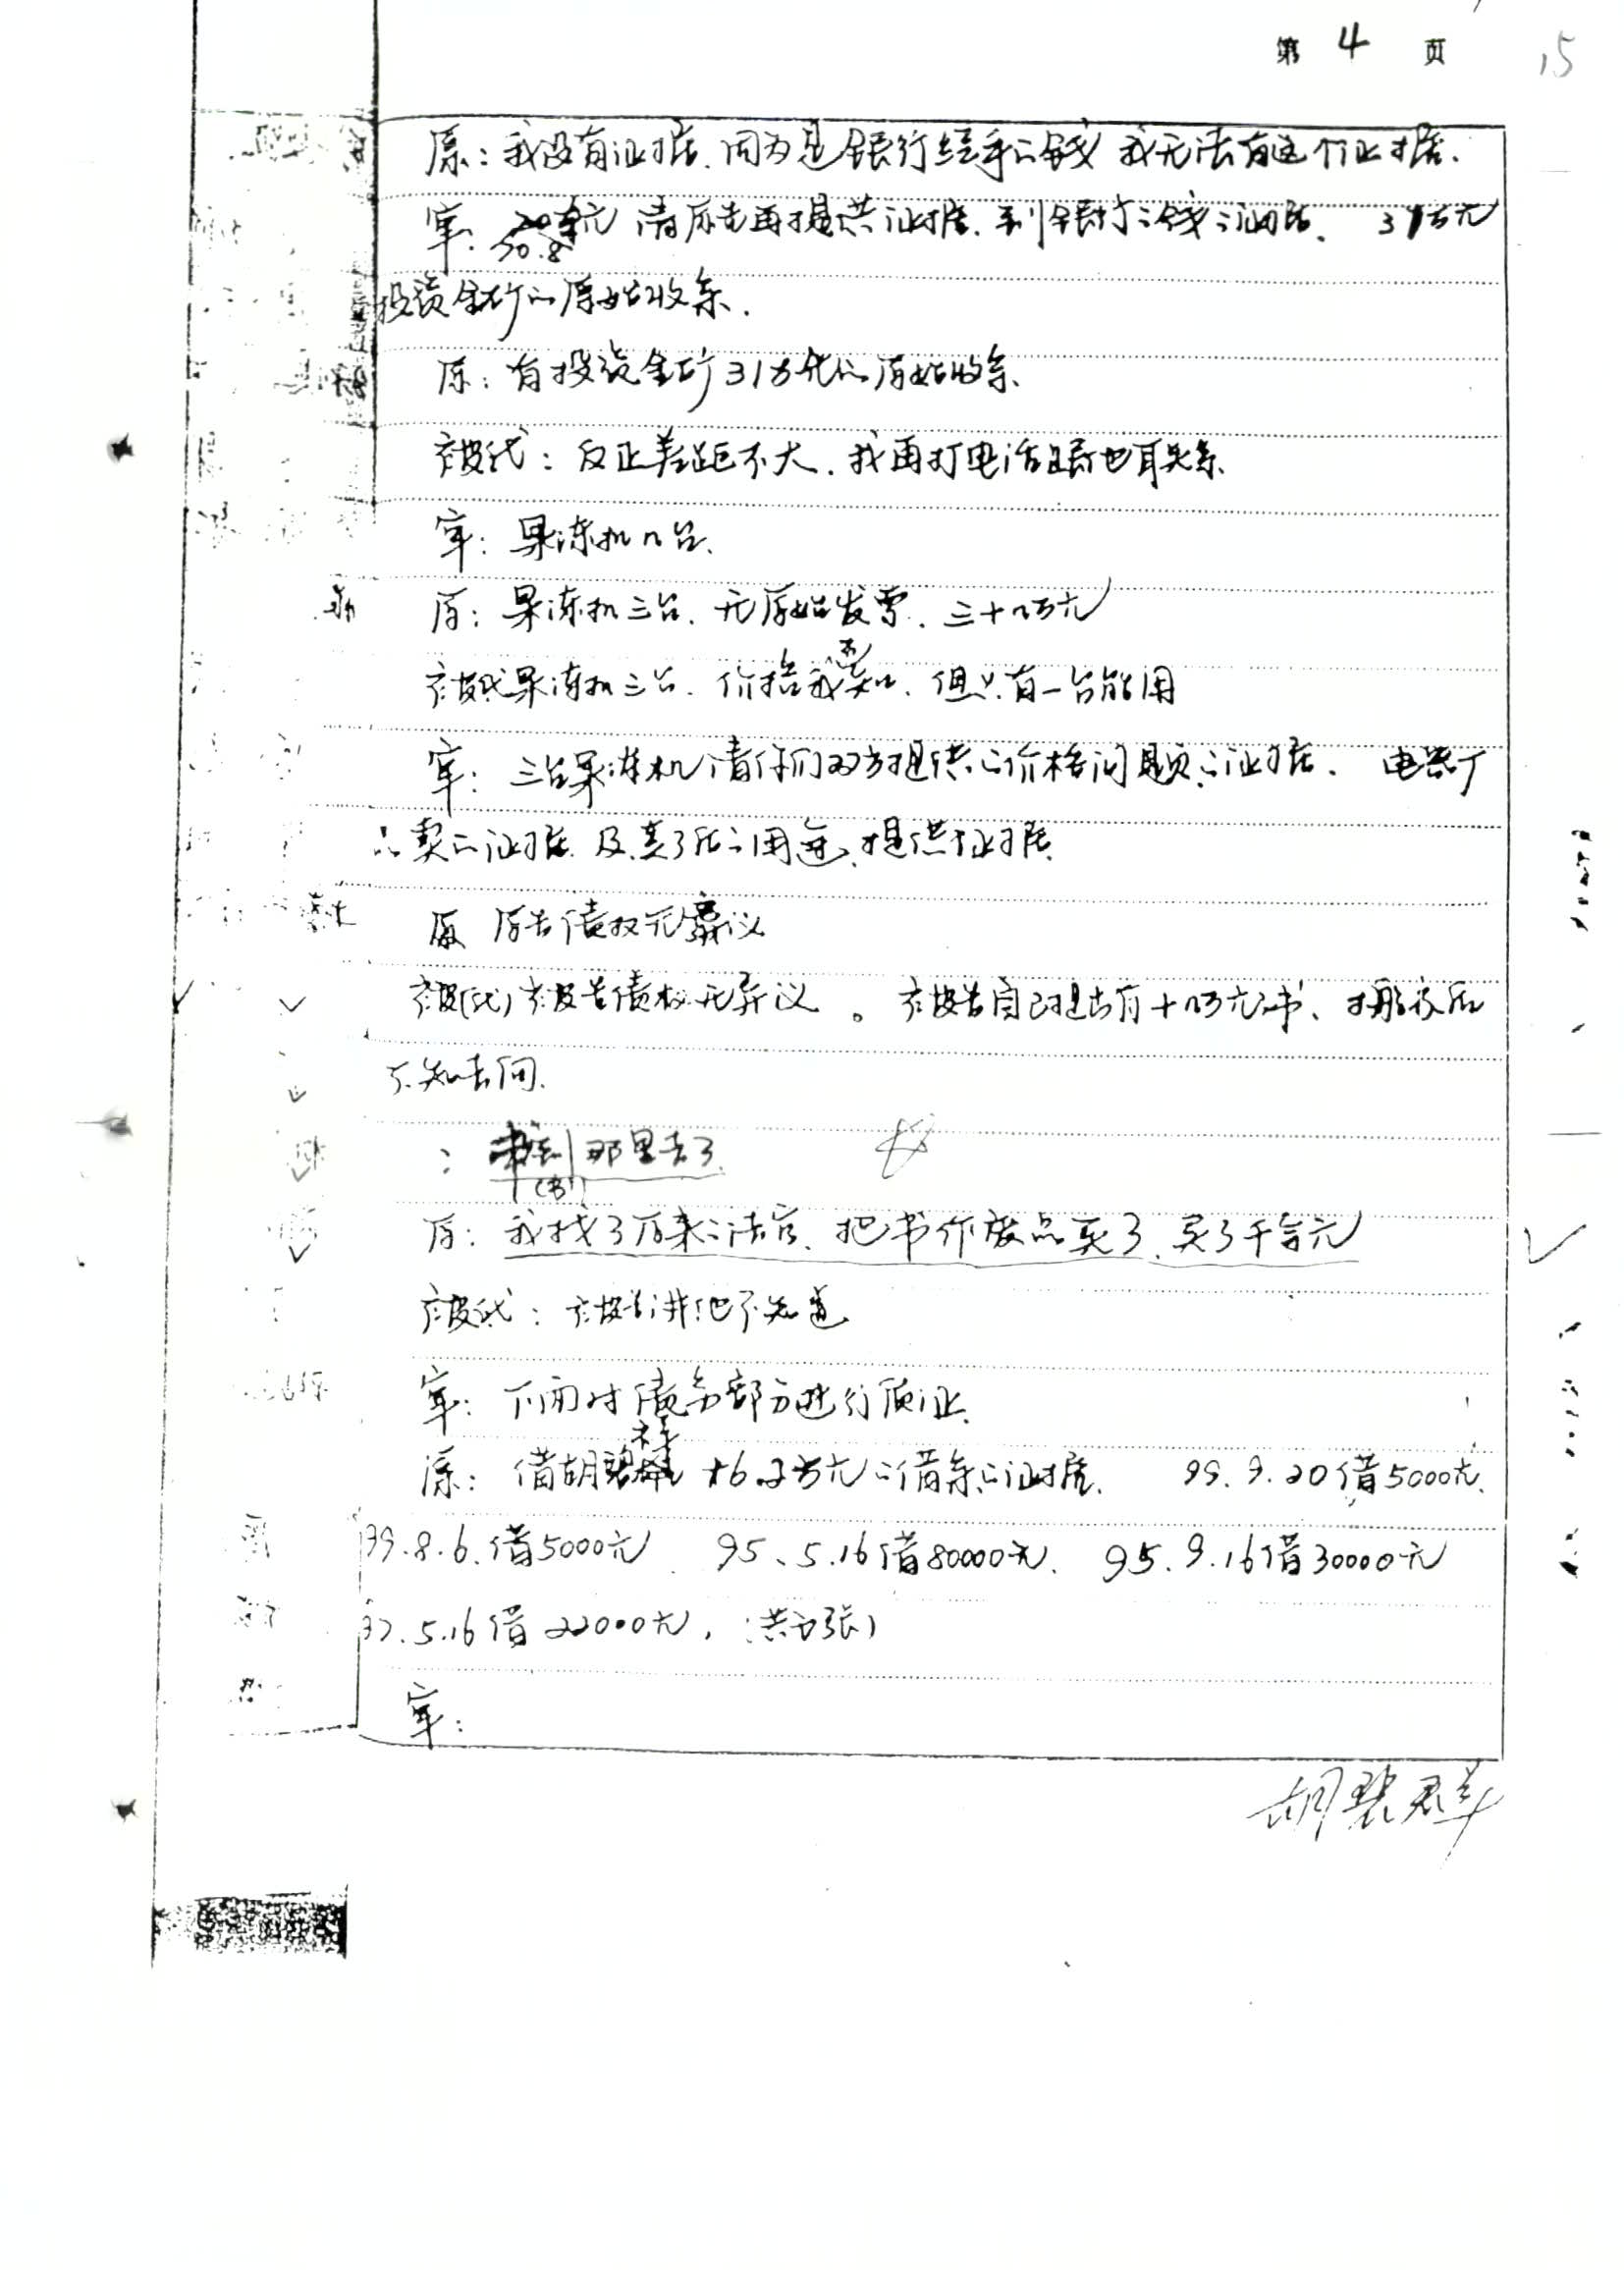 第 4 页 15
原：我没有证据、因为是银行经手的钱 我无法有这个证据．
审： 50.8 元 请原告再提供证据、到银行的钱的证据． 31万元
投资金矿的原始收条．
原：有投资金矿31万元的原始收条．
被代：反正差距不大．我再打电话跟他联系．
审：果冻机几台．
原：果冻机三台．无原始发票．三十几万元
被代 果冻机三台．价格我不知．但只有一台能用
审：三台果冻机请你们双方提供的价格问题的证据． 电器厂
买的证据 及卖了后的用途．提供证据．
原 原告债权无异议
被（代）被告债权无异议 。 被告自己提出有十几万元书、 后
不知去向．
： 到那里去了．
（书）
原：我找了原来的法官．把书作废品卖了．卖了千合元
被代：被告讲他不知道
审：下面对债务部分进行质证．
原：借胡 16.2万元的借条的证据． 99.9.20借5000元．
99.8.6.借5000元 95、5.16借80000元． 95.9.16借30000元
97.5.16借22000元， （共5张）
审：
胡碧群